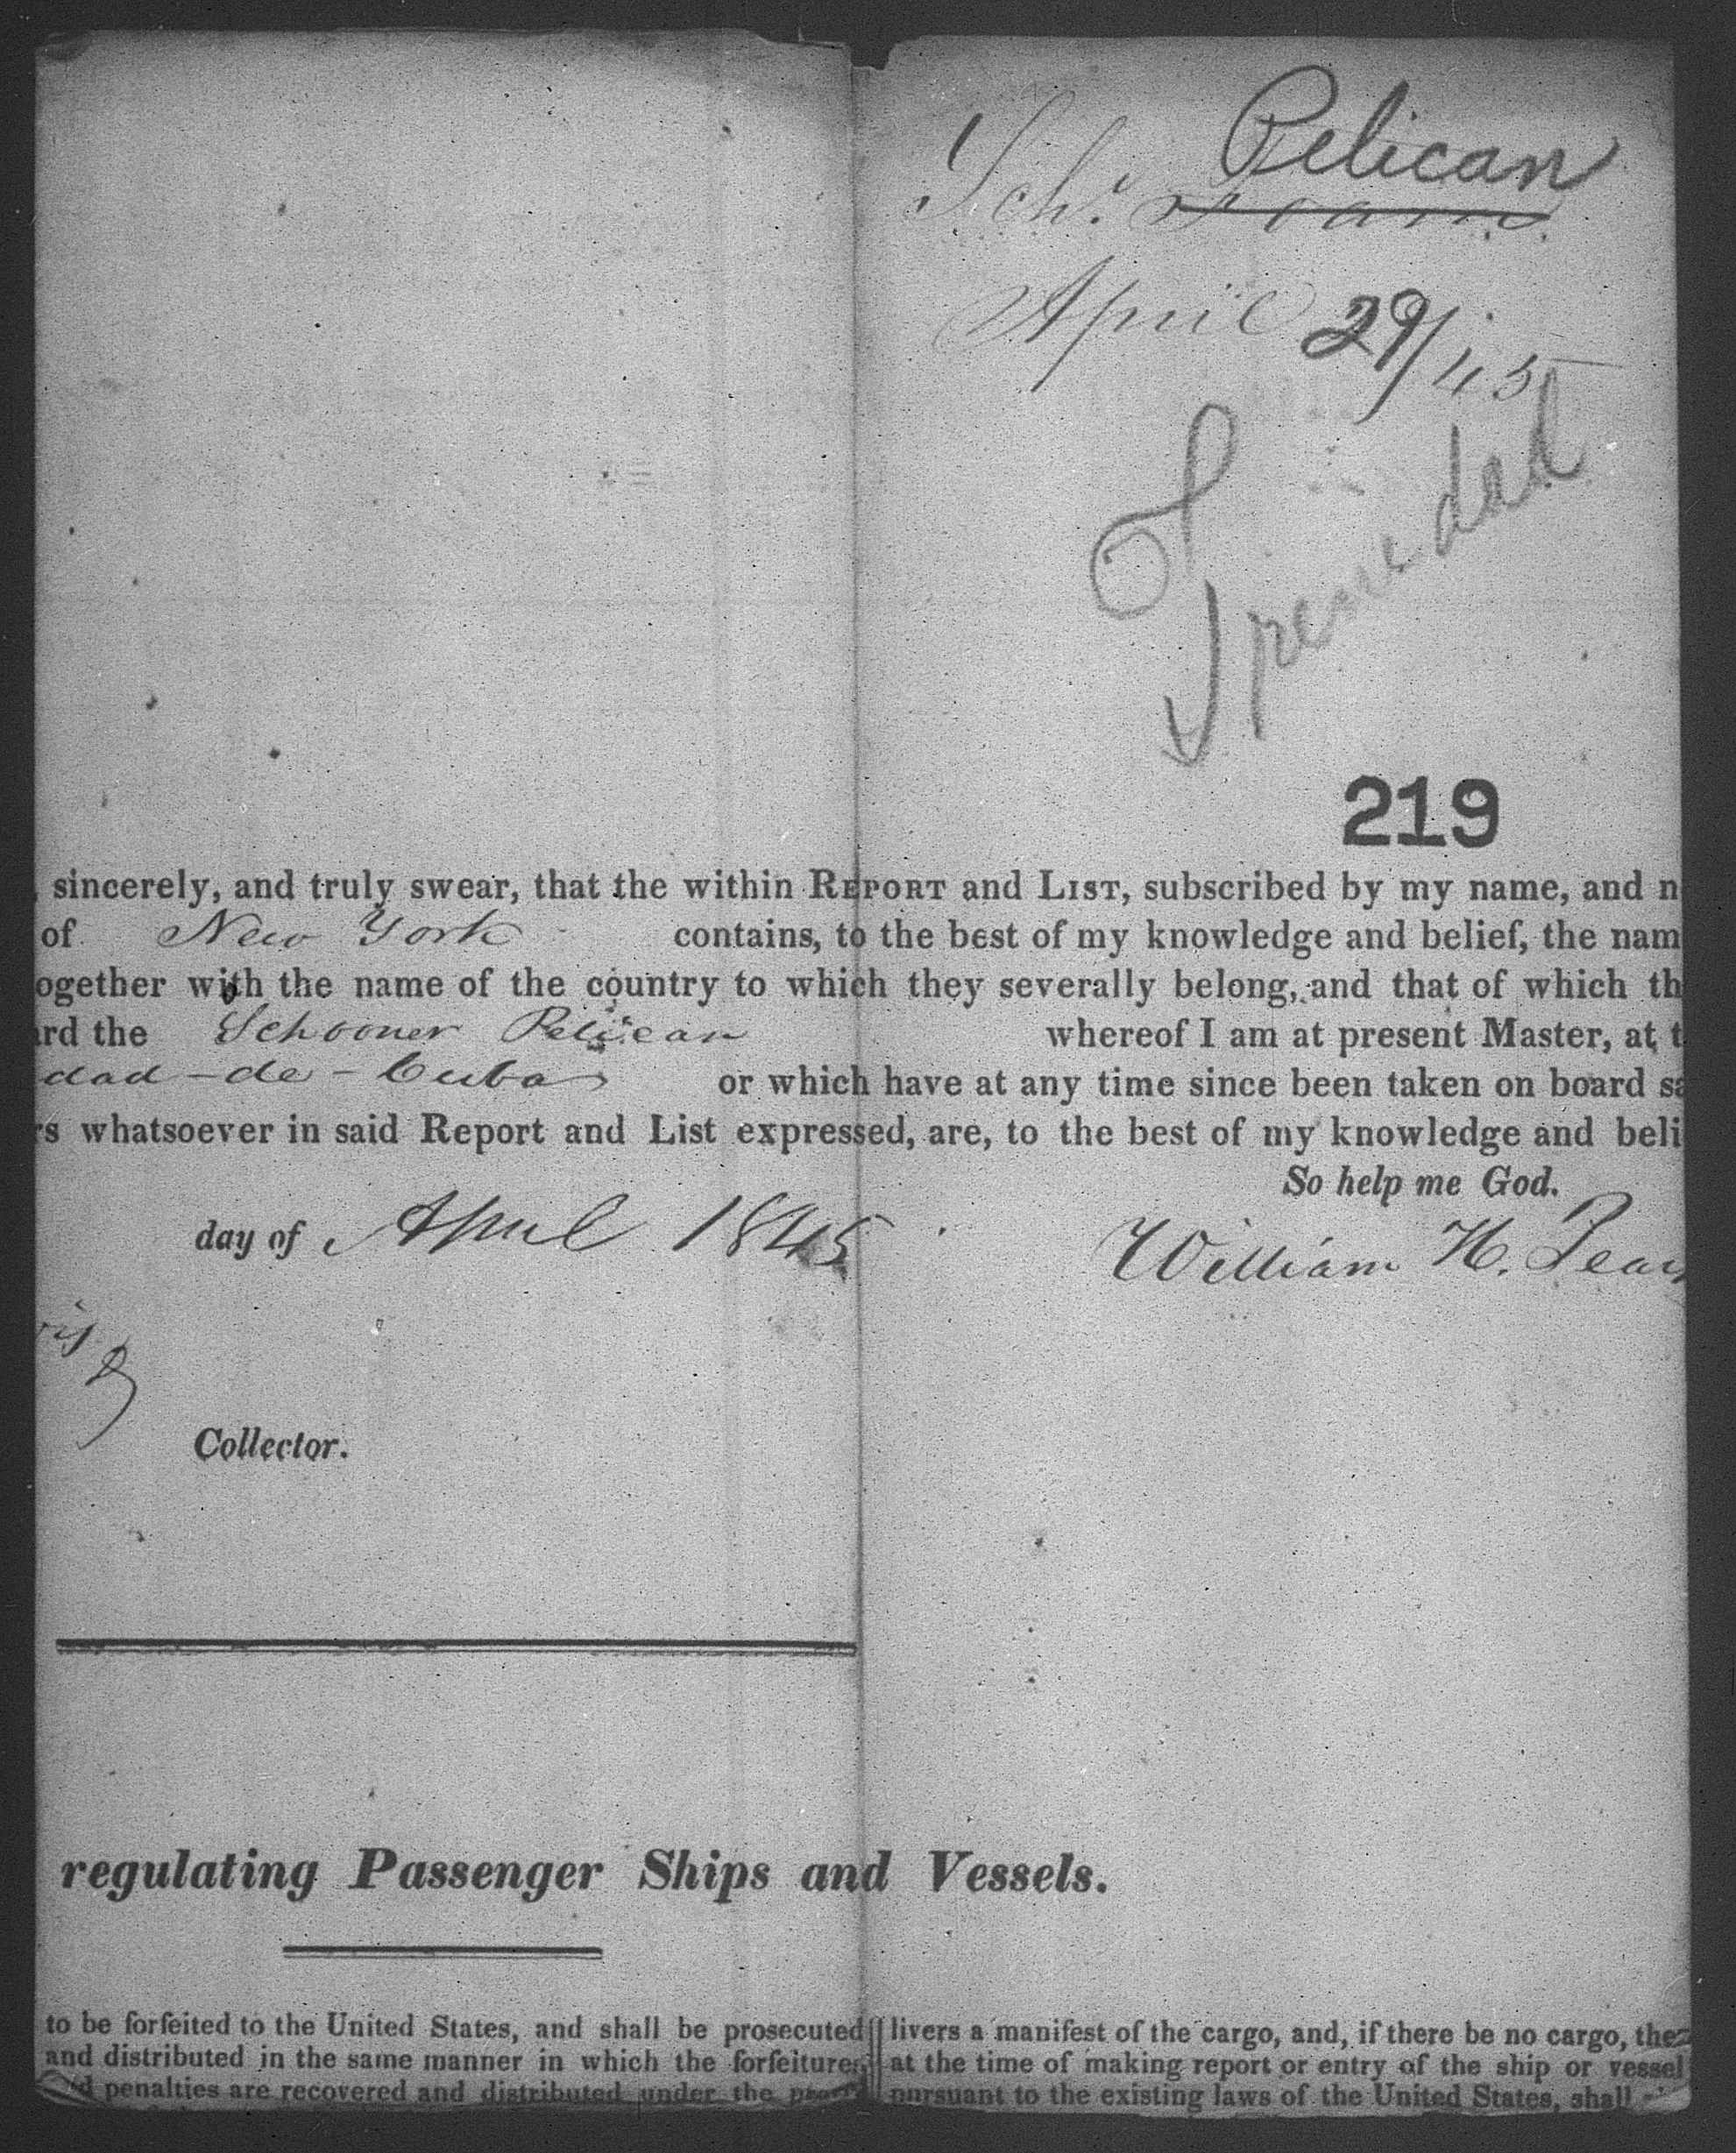 Pelican
Schr.
April 29/45
Of
Trenedad
219
, sincerely, and truly swear, that the within REPORT and LIST, subscribed by my name, and n
of New York contains, to the best of my knowledge and belief, the nam
ogether with the name of the country to which they severally belong, and that of which th
rd the Schooner Pelican whereof I am at present Master, at t
dad-de-Cuba or which have at any time since been taken on board sa
rs whatsoever in said Report and List expressed, are, to the best of my knowledge and beli
So help me God.
day of April 1845 William H.
Collector.
regulating Passenger Ships and Vessels.
to be forfeited to the United States, and shall be prosecuted
and distributed in the same manner in which the forfeitures
penalties are recovered and distributed under the
livers a manifest of the cargo, and, if there be no cargo, the
at the time of making report or entry of the ship or vessel
pursuant to the existing laws of the United States, shall